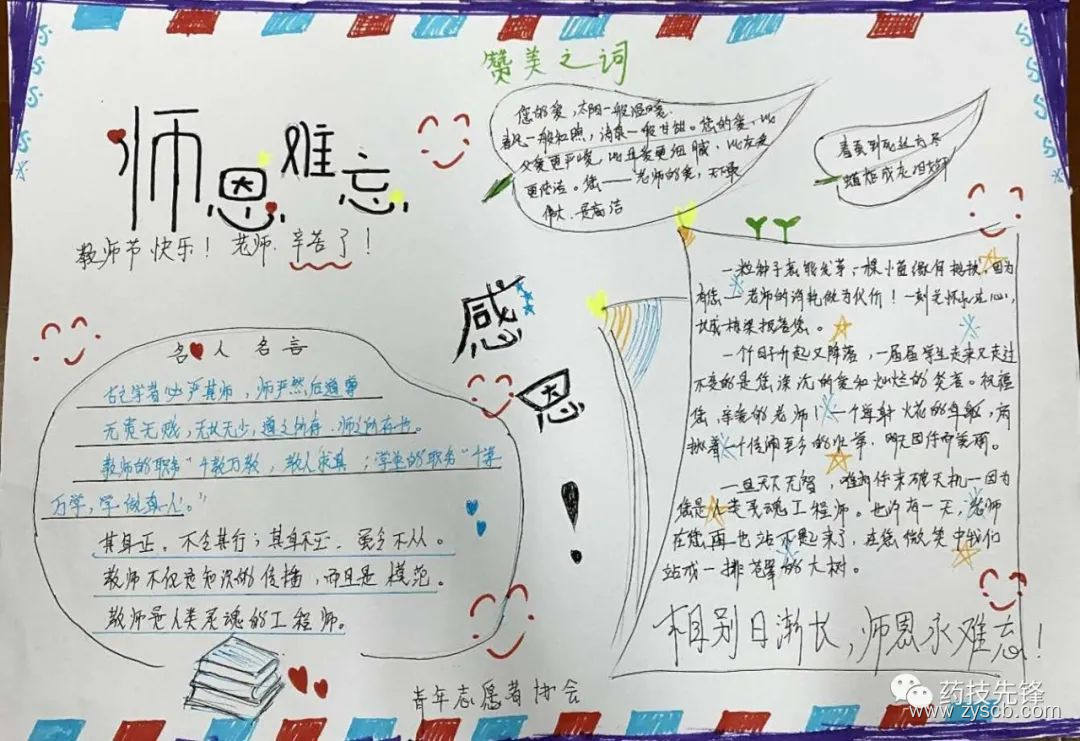 师恩难忘
教师节快乐！老师.辛苦了！
赞美之词
您的爱，太阳一般温暖.
春风一般和煦，清泉一般甘甜。您的爱，比
父爱更严峻，比母爱更细腻，比友爱
更纯洁。您——老师的爱，天下最
伟大.最高洁
春蚕到死丝方尽
蜡炬成灰泪始
感恩！
名人名言
古之学者必严其师，师严然后道尊
无贵无贱，无长无少，道之所存.师之所存也。
教师的职务"千教万教，教人求真；学生的职务"千学
万学，学做真人。"
其身正.不令其行；其身不正.虽令不从。
教师不仅是知识的传播，而且是模范。
教师是人类灵魂的工程师。
一粒种子
有您——老师的 做为代价！一刻
报答您。
一个日子升起又降落，一届届学生走来又走过
不变的是您深沉的爱和灿烂的笑容。祝福
您，亲爱的老师！一个
挑着一个
一旦天下无
您是人类灵魂工程师。也许有一天，老师
在您再也站不起来了，在您微笑中我们
站成一排 的大树。
相别日渐长，师恩永难忘！
青年志愿者协会
药技先锋
www.zyscb.com